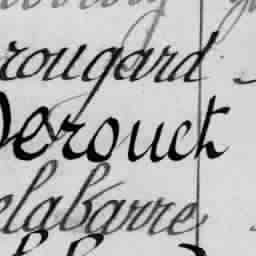 rougard
Derouck
elabarre